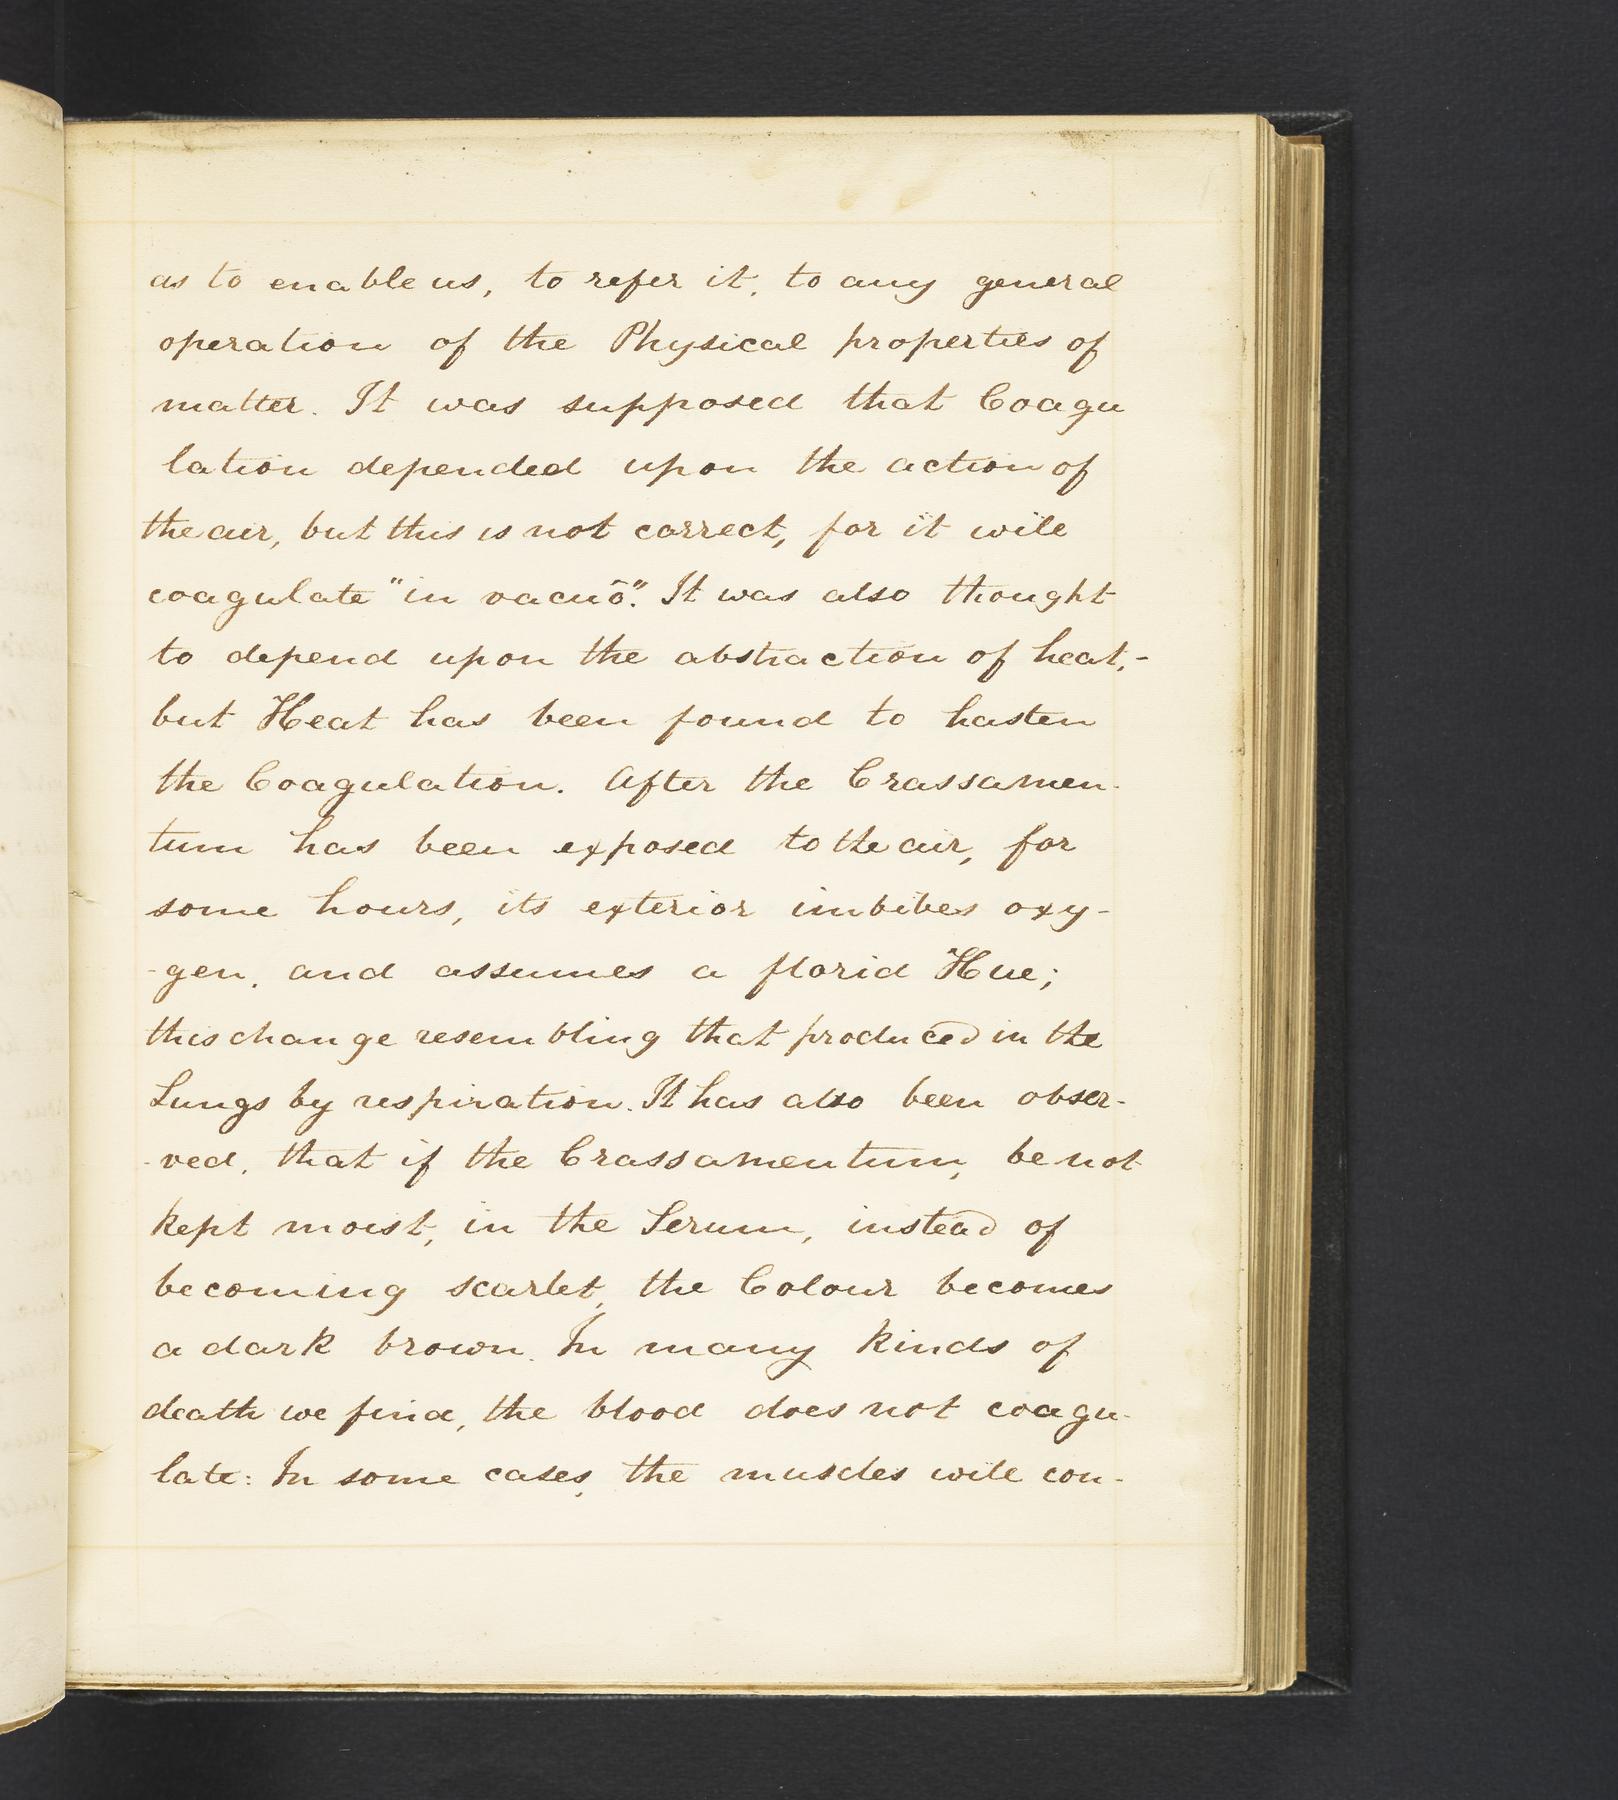 as to enable us, to refer it, to any general
operation of the Physical properties of
matter. It was supposed that Coagu
lation depended upon the action of
the air, but this is not correct, for it will
coagulate "in vacuô". It was also thought
to depend upon the abstraction of heat,-
but Heat has been found to hasten
the Coagulation. After the Crassamen-
tum has been exposed to the air, for
some hours, its exterior imbibes oxy-
-gen, and assumes a florid Hue;
this change resembling that produced in the
Lungs by respiration. It has also been obser-
-ved, that if the Crassamentum, be not
kept moist, in the Serum, instead of
becoming scarlet, the Colour becomes
a dark brown. In many kinds of
death we find, the blood does not coagu-
late: In some cases, the muscles will con-